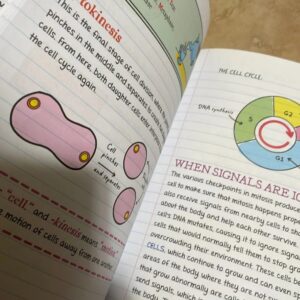 tokinesis
This is the final stage of cell division when the
pinches in the middle and separates to
cells. From here, both daughter cells enter
the cell cycle again.
Cell
pinches
and separates
"cell" and -kinesis means "motion"
e motion of cells away from one another
THE CELL CYCLE
DNA synthesis
S
G2
G1
WHEN SIGNALS ARE IG
The various checkpoints in mitosis produce
cell to make sure that mitosis happens prop
also receive signals from nearby cells to sha
about the body and help each other survive
cell's DNA mutates, causing it to ignore signa
cells that would normally tell them to stop gro
overcrowding their environment. These cells b
CELLS, which continue to grow and can even
areas of the body where they are not su
that grow abnormally are called
and send signals, which
the body. T